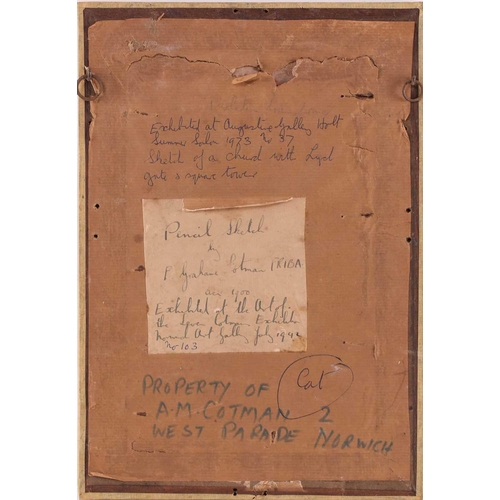 Exhibited at Augustine Gallery Holt
Summer Salon 1973 No 37
Sketch of a church with Lych
gate & square tower
Pencil Sketch
by
P. Graham-Cotman FRIBA
1900
Exhibited at the Art of
the Seven Cotmans Exhibition
Art Gallery July
No 103
Cat
PROPERTY OF
A.M. COTMAN 2
WEST PARADE NORWICH